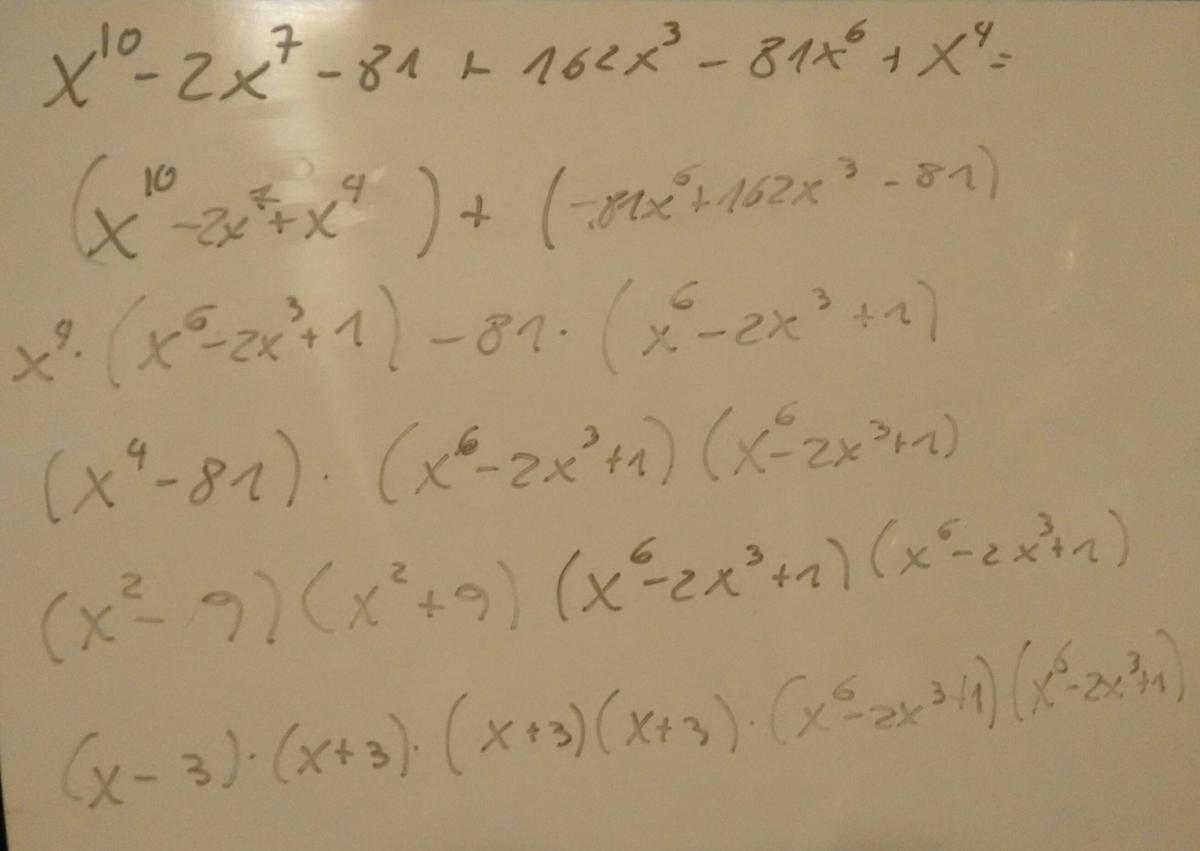 x¹⁰ - 2x⁷ - 81 + 162x³ - 81x⁶ + x⁴ =
(x¹⁰ - 2x⁷ + x⁴) + (-81x⁶ + 162x³ - 81)
x⁴ · (x⁶ - 2x³ + 1) - 81 · (x⁶ - 2x³ + 1)
(x⁴ - 81) · (x⁶ - 2x³ + 1) (x⁶ - 2x³ + 1)
(x² - 9) (x² + 9) (x⁶ - 2x³ + 1) (x⁶ - 2x³ + 1)
(x - 3) · (x + 3) · (x + 3) (x + 3) · (x⁶ - 2x³ + 1) (x⁶ - 2x³ + 1)